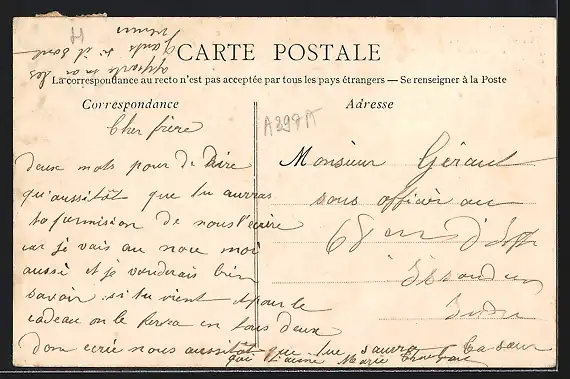 CARTE POSTALE
La correspondance au recto n'est pas acceptée par tous les pays étrangers — Se renseigner à la Poste
Correspondance
Adresse
A397A
Cher frère
deux mots pour te Dire
qu'aussitôt que tu auras
ta permision de nous l'écrire
car je vais au noce moi
aussi et je voudrais bien
savoir si tu vient et pour le
cadeau on le ferra en tous deux
Donc écrié nous aussitôt que tue saura
Monsieur Géraut
sous officier au
68 em d'
Issoudun
Indre
apporte moi les
gants si il sont
Marie